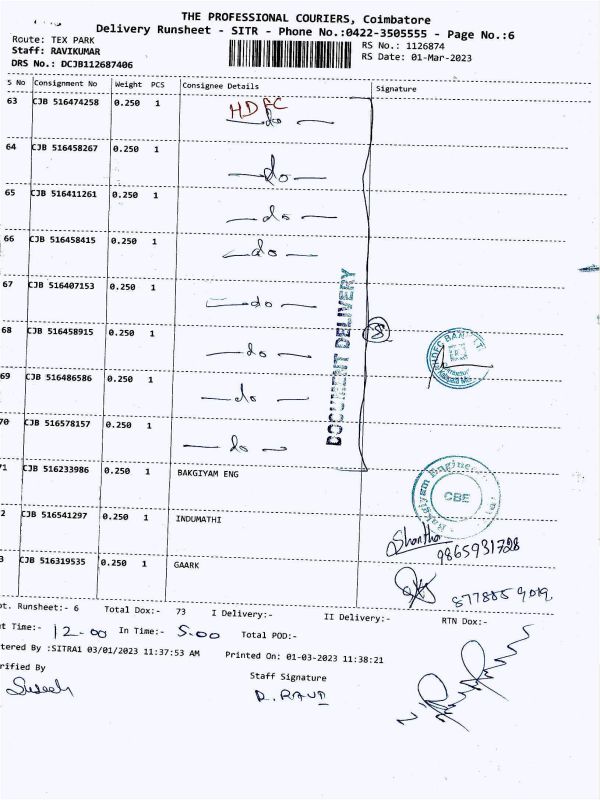 THE PROFESSIONAL COURIERS, Coimbatore
Delivery Runsheet - SITR - Phone No.:0422-3505555 - Page No.:6
Route: TEX PARK
RS No.: 1126874
Staff: RAVIKUMAR
RS Date: 01-Mar-2023
DRS No.: DCJB112687406
S No Consignment No Weight PCS Consignee Details Signature
63 CJB 516474258 0.250 1 HDFC
— do —
64 CJB 516458267 0.250 1 — do —
65 CJB 516411261 0.250 1 — do —
66 CJB 516458415 0.250 1 — do —
67 CJB 516407153 0.250 1 — do —
68 CJB 516458915 0.250 1 — do —
69 CJB 516486586 0.250 1 — do —
70 CJB 516578157 0.250 1 — do —
DOCUMENT DELIVERY
HDFC BANK LTD.
71 CJB 516233986 0.250 1 BAKGIYAM ENG
Bakgiyam Engine
CBE
2 CJB 516541297 0.250 1 INDUMATHI
Shantha
9865931728
3 CJB 516319535 0.250 1 GAARK
877885 9019
ot. Runsheet:- 6 Total Dox:- 73 I Delivery:- II Delivery:- RTN Dox:-
ut Time:- 12.00 In Time:- 5.00 Total POD:-
tered By :SITRA1 03/01/2023 11:37:53 AM Printed On: 01-03-2023 11:38:21
rified By
Staff Signature
Suresh
R. RAVI